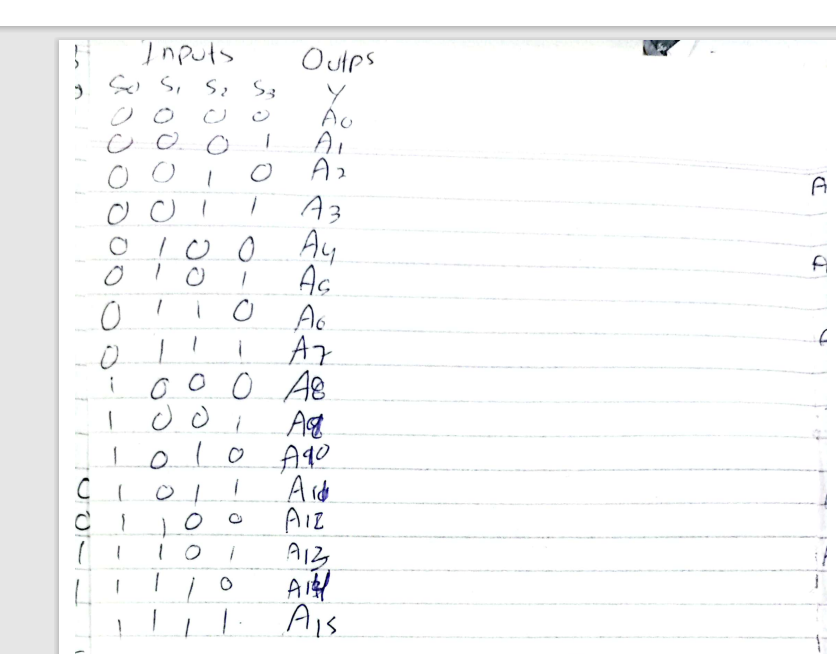 Inputs Outps
S0 S1 S2 S3 Y
0 0 0 0 A0
0 0 0 1 A1
0 0 1 0 A2
0 0 1 1 A3
0 1 0 0 A4
0 1 0 1 A5
0 1 1 0 A6
0 1 1 1 A7
1 0 0 0 A8
1 0 0 1 A9
1 0 1 0 A10
1 0 1 1 A11
1 1 0 0 A12
1 1 0 1 A13
1 1 1 0 A14
1 1 1 1 A15